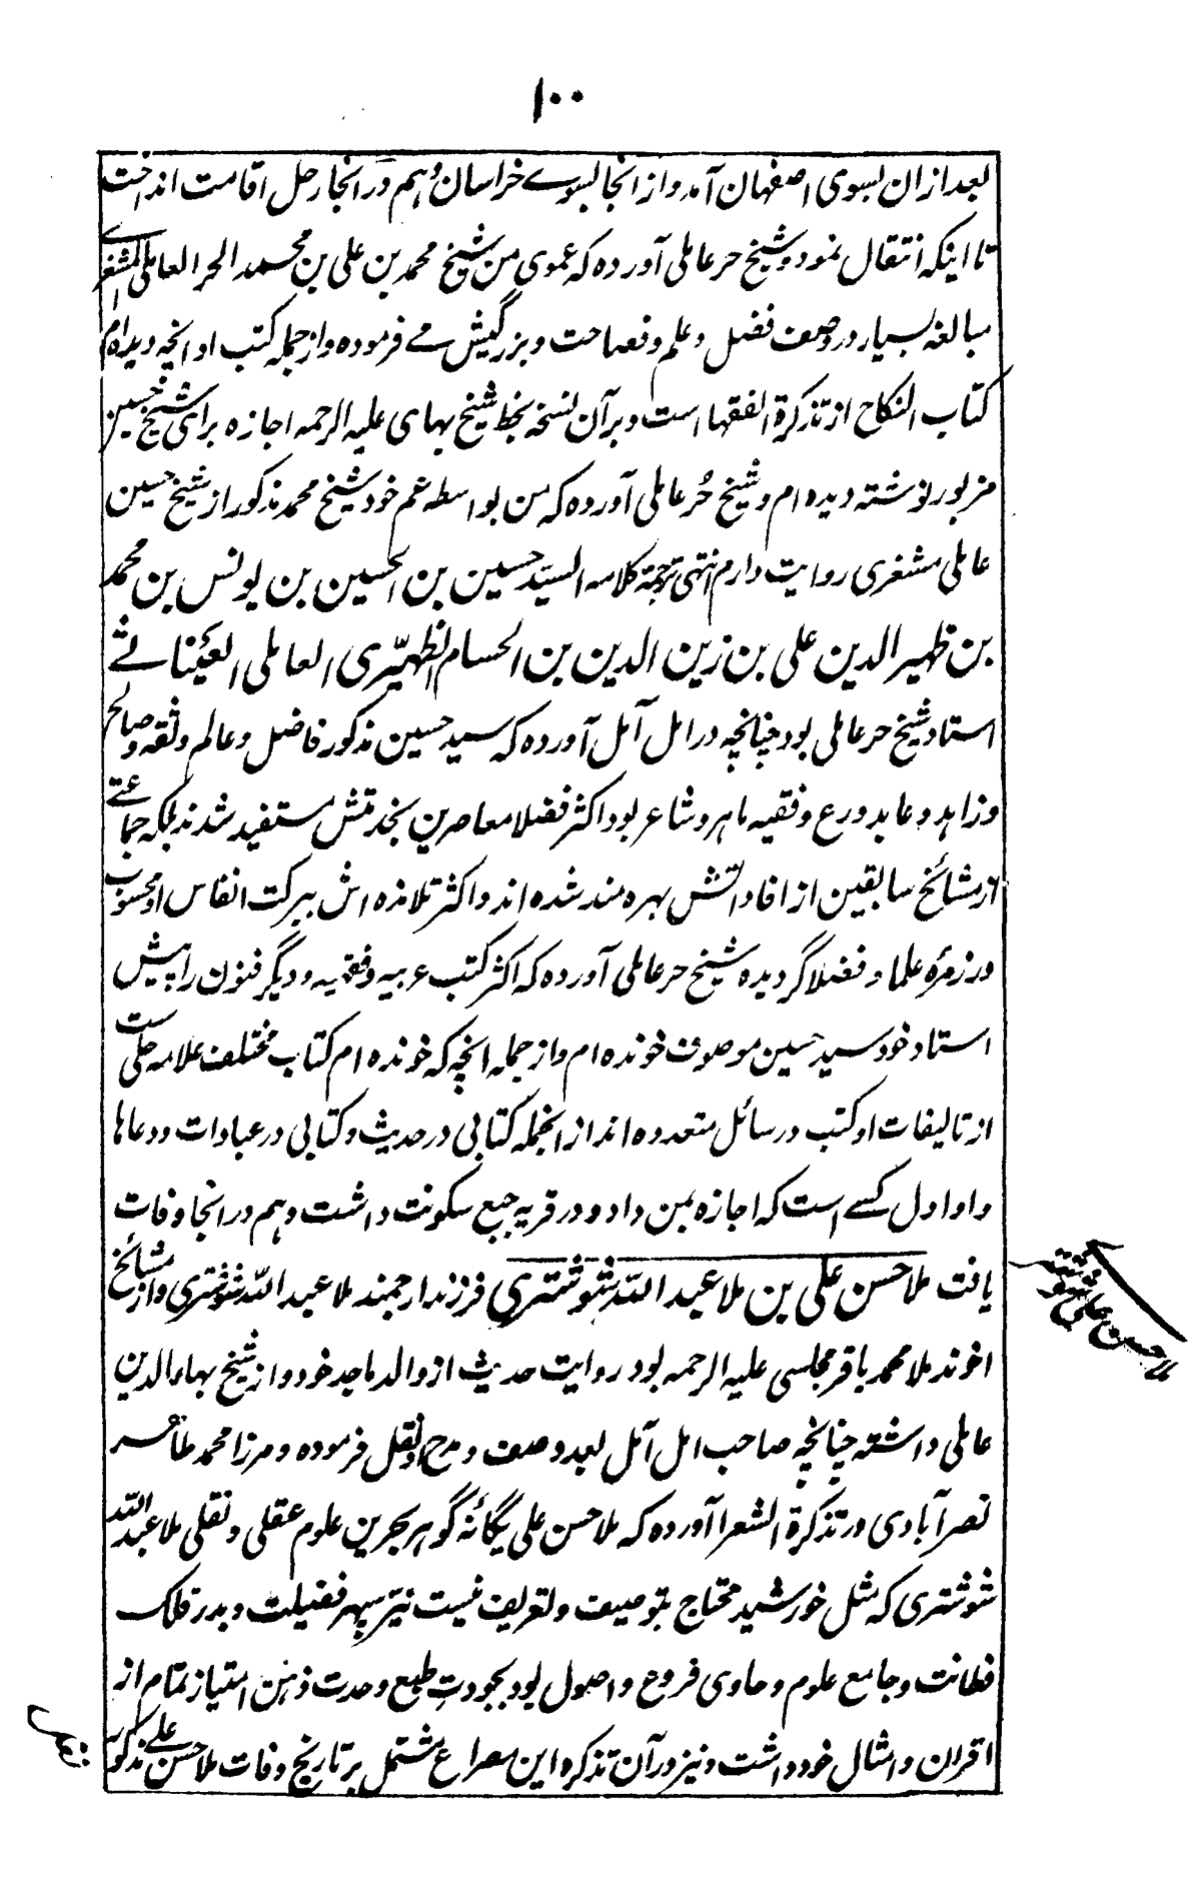 ۱۰۰
بعد ازان بسوی اصفهان آمد و از انجا بسوے خراسان و هم در انجا رحل اقامت انداخت
تا اینکه انتقال نمود و شیخ حر عاملی آورده که عموی من شیخ محمد بن علی بن محمد الحر العاملی المشغرے
مبالغه بسیار در وصف فضل و علم و فصاحت و بزرگیش مے فرموده و از جمله کتب او انچه دیده‌ام
کتاب النکاح از تذکرة الفقها است و بر آن نسخه بخط شیخ بهای علیه الرحمه اجازه برای شیخ حسین
مزبور نوشته دیده ام و شیخ حُر عاملی آورده که من بواسطه عم خود شیخ محمد مذکور از شیخ حسین
عاملی مشغری روایت دارم انتهی ترجمة کلامه السیّد حسین بن الحسین بن یونس بن محمد
بن ظهیر الدین علی بن زین الدین بن الحسام الظهیّری العاملی العیناثے
استاد شیخ حر عاملی بود چنانچه در امل آمل آورده که سید حسین مذکور فاضل و عالم و ثقه و صالح
و زاهد و عابد و رع و فقیه ماهر و شاعر بود اکثر فضلا معاصرین بخدمتش مستفید شدند بلکه جماعتے
از مشائخ سابقین از افاداتش بهره مند شده اند و اکثر تلامذه اش ببرکت انفاس او محسوب
در زمره علما و فضلا گردیده شیخ حر عاملی آورده که اکثر کتب عربیه و فقهیه و دیگر فنون را پیش
استاد خود سید حسین موصوف خونده ام و از جمله انچه که خونده ام کتاب مختلف علامه حلی ست
از تالیفات او کتب و رسائل متعدده اند از انجمله کتابی در حدیث و کتابی در عبادات و دعاها
و او اول کسے است که اجازه بمن داد و در قریه جبع سکونت داشت و هم در انجا وفات
یافت ملا حسن علی بن ملا عبد اللّه شوشتری فرزند ارجمند ملا عبد اللّه شوشتری و از مشائخ
ملا حسن علی شوشتری
اخوند ملا محمد باقر مجلسی علیه الرحمه بود روایت حدیث از والد ماجد خود و از شیخ بهاء الدین
عاملی داشته چنانچه صاحب امل آمل بعد وصف و مدح او نقل فرموده و مرزا محمد طاهر
نصر آبادی در تذکرة الشعرا آورده که ملا حسن علی یگانهٔ گوهر بحرین علوم عقلی و نقلی ملا عبد اللّه
شوشتری که مثل خورشید محتاج بتوصیف و تعریف نیست نیّر سپهر فضیلت و بدر فلک
فطانت و جامع علوم و حاوی فروع و اصول بود بجودتِ طبع و حدت ذهن امتیاز تمام از
اقران و امثال خود داشت و نیز در آن تذکره این مصراع مشتمل بر تاریخ وفات ملا حسن علے مذکور